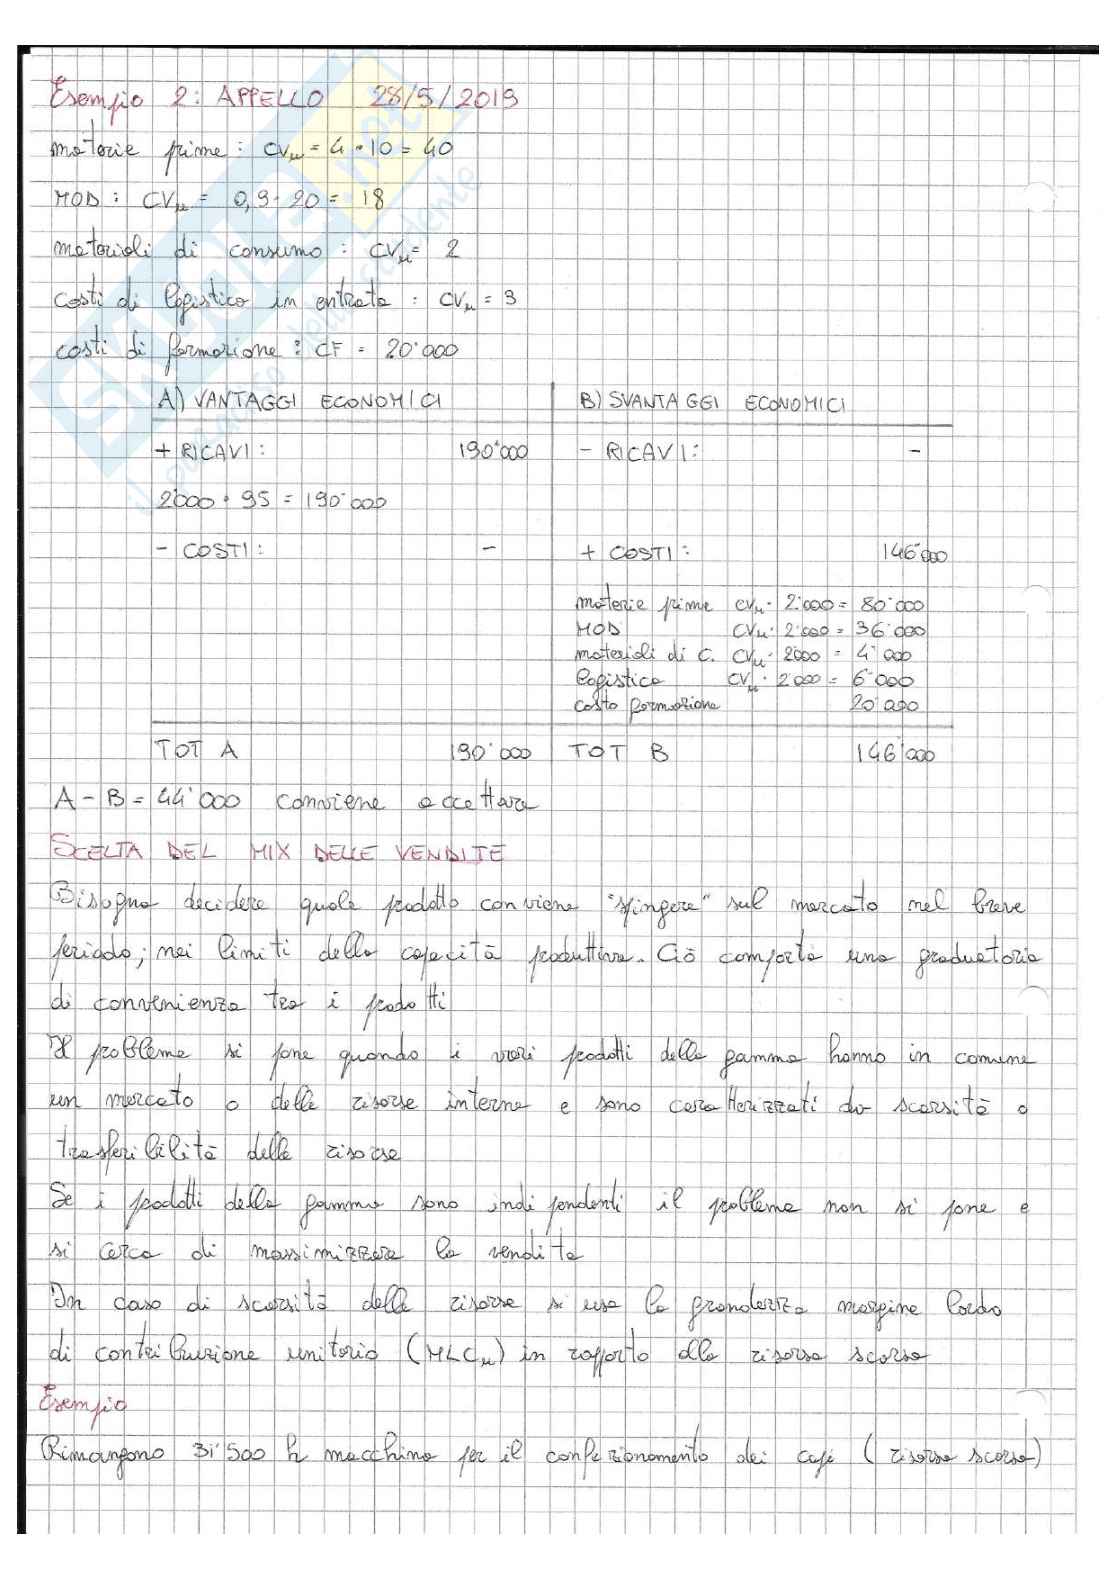 Esempio 2: APPELLO 28/5/2019
materie prime: CVu = 4 • 10 = 40
MOD: CVu = 0,9 • 20 = 18
materiali di consumo: CVu = 2
costi di logistica in entrata: CVu = 3
costi di formazione: CF = 20'000
A) VANTAGGI ECONOMICI B) SVANTAGGI ECONOMICI
+ RICAVI: 190'000 - RICAVI: -
2'000 • 95 = 190'000
- COSTI: - + COSTI: 146'000
materie prime CVu • 2'000 = 80'000
MOD CVu • 2'000 = 36'000
materiali di C. CVu • 2000 = 4'000
logistica CVu • 2'000 = 6'000
costo formazione 20'000
TOT A 190'000 TOT B 146'000
A - B = 44'000 conviene accettare
SCELTA DEL MIX DELLE VENDITE
Bisogna decidere quale prodotto conviene "spingere" sul mercato nel breve
periodo; nei limiti della capacità produttiva. Ciò comporta una graduatoria
di convenienza tra i prodotti
Il problema si pone quando i vari prodotti della gamma hanno in comune
un mercato o delle risorse interne e sono caratterizzati da scarsità o
trasferibilità delle risorse
Se i prodotti della gamma sono indipendenti il problema non si pone e
si cerca di massimizzare la vendita
In caso di scarsità delle risorse si usa la grandezza margine lordo
di contribuzione unitario (MLCu) in rapporto alla risorsa scarsa
Esempio
Rimangono 31'500 h macchina per il confezionamento dei capi (risorsa scarsa)